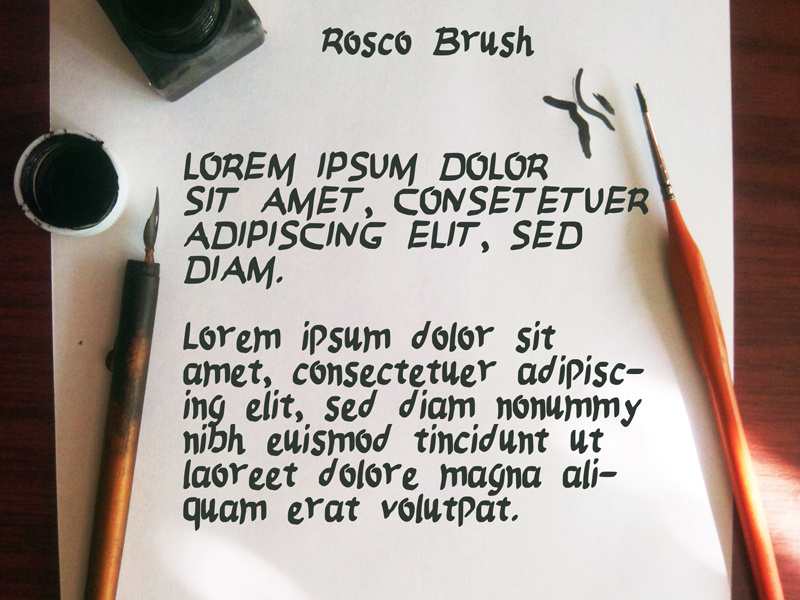 Rosco Brush
LOREM IPSUM DOLOR
SIT AMET, CONSETETUER
ADIPISCING ELIT, SED
DIAM.
Lorem ipsum dolor sit
amet, consectetuer adipisc-
ing elit, sed diam nonummy
nibh euismod tincidunt ut
laoreet dolore magna ali-
quam erat volutpat.